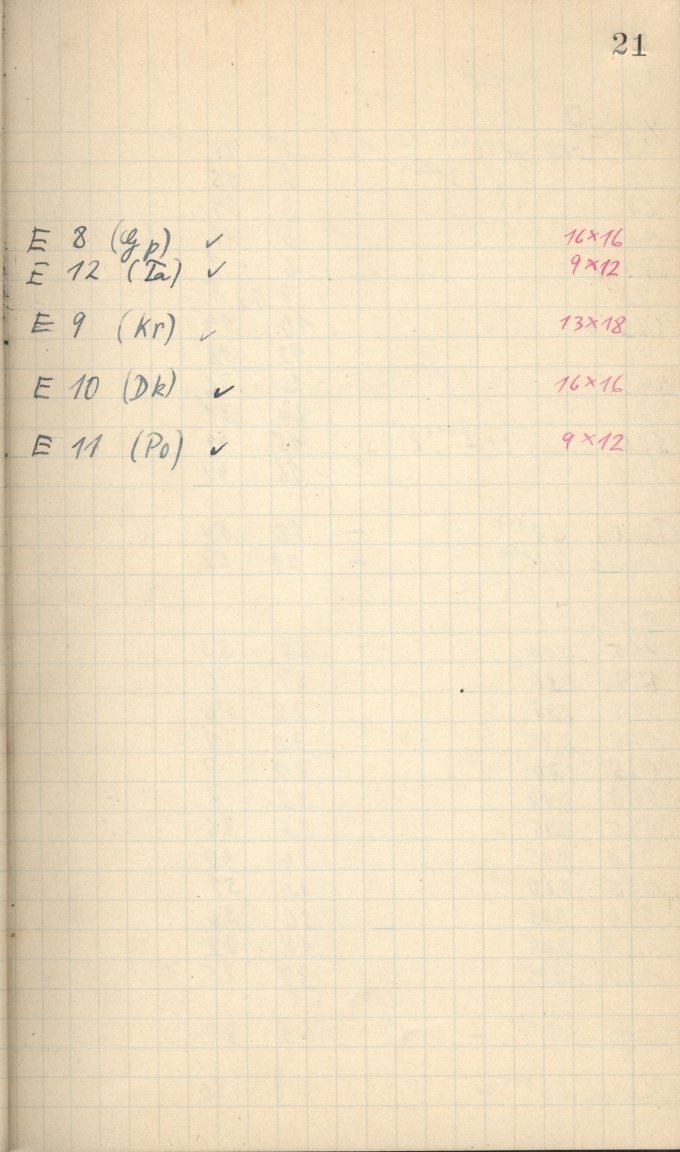 21
E 8 (Gp) ✓ 16×16
E 12 (Ta) ✓ 9×12
E 9 (Kr) ✓ 13×18
E 10 (Dk) ✓ 16×16
E 11 (Po) ✓ 9×12